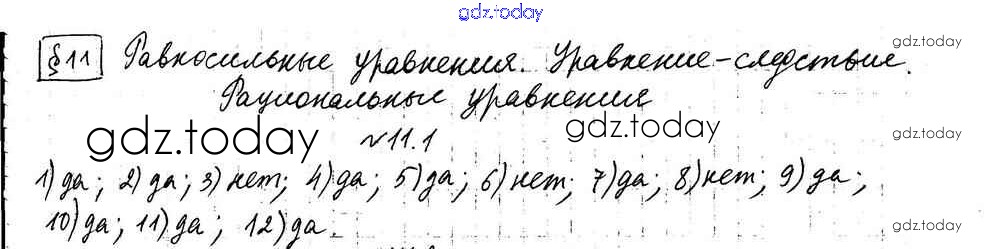 gdz.today
gdz.today
§11 Равносильные уравнения. Уравнение-следствие.
Рациональные уравнения
gdz.today
gdz.today
gdz.today
№11.1
1) да; 2) да; 3) нет; 4) да; 5) да; 6) нет; 7) да; 8) нет; 9) да;
10) да; 11) да; 12) да.
gdz.today